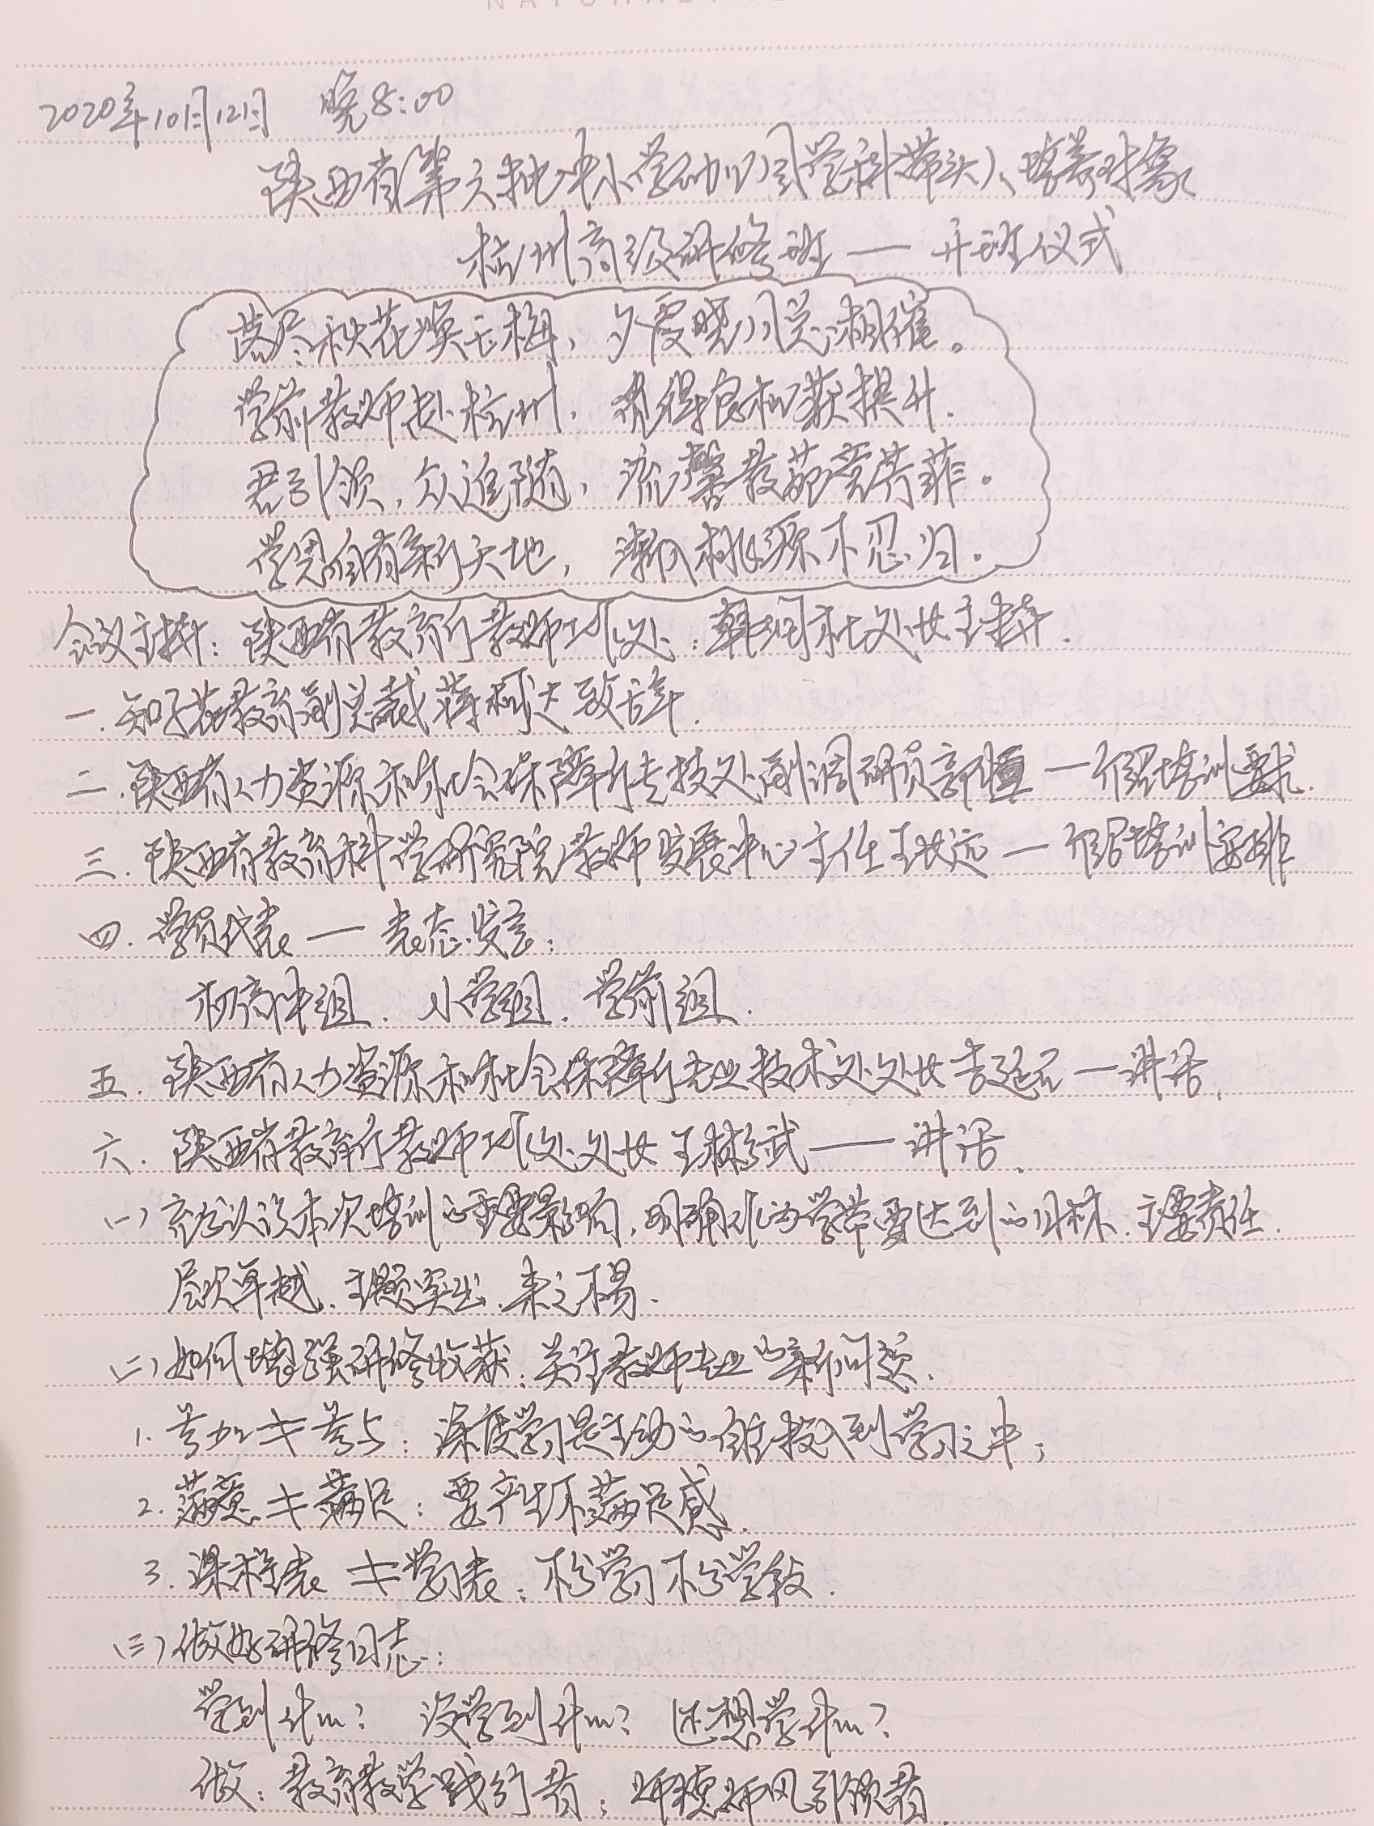 2020年10月12日 晚8:00
陕西省第六批中小学幼儿园学科带头人培养对象
杭州高级研修班——开班仪式
落尽秋花焕玉梅，夕霞晓川总相催。
学前教师赴杭州，觅得良机获提升.
君引领，众追随，流馨教苑赏芳菲。
学思自有新天地，渐入桃源不忍归。
会议主持：陕西省教育厅教师工作处：韩润社处长主持.
一.知子花教育副总裁 蒋 致辞.
二.陕西省人力资源和社会保障厅专技处副调研员郭恒——介绍培训要求.
三.陕西省教育科学研究院教师发展中心主任王长远——介绍培训安排
四.学员代表——表态发言：
初高中组. 小学组. 学前组.
五.陕西省人力资源和社会保障厅专业技术处处长吉延元——讲话.
六.陕西省教育厅教师工作处处长王彬武——讲话.
(一)充分认识本次培训的重要影响,明确作为学带要达到的目标.主要责任.
层次卓越.主题突出.来之不易.
(二)如何增强研修收获：关注教师专业的新问题.
1.参加≠参与：深度学习是主动的自主投入到学习之中；
2.满意≠满足：要产生不满足感.
3.课程表≠学习表：不分学习不分学段.
(三)做好研修日志：
学到什么？ 没学到什么？ 还想学什么？
做：教育教学践行者；师德师风引领者